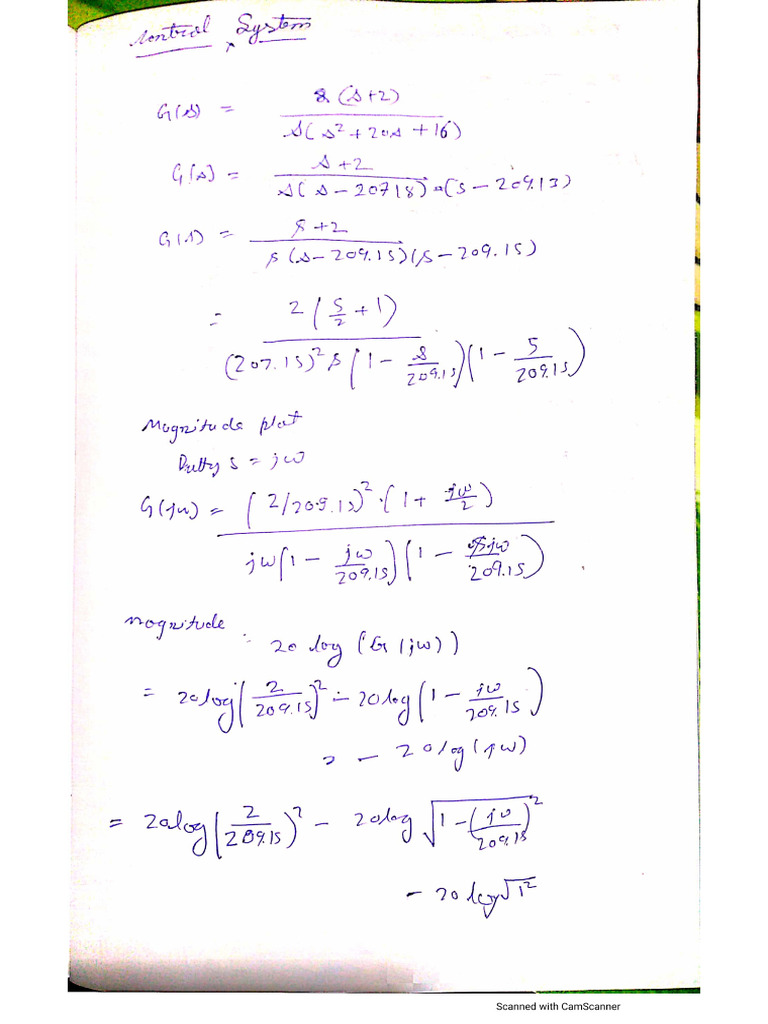 Control System
G(s) = 8(s+2) / s(s²+20s+16)
G(s) = s+2 / s(s-20718)=(s-209.13)
G(s) = s+2 / s(s-209.15)(s-209.15)
= 2(s/2+1) / (207.15)² s(1-s/209.15)(1-s/209.15)
Magnitude plot
Putty s = jω
G(jω) = (2/209.15)²·(1+jω/2) / jω(1-jω/209.15)(1-jω/209.15)
Magnitude : 20 log(G(jω))
= 20log(2/209.15)² - 20log(1-jω/209.15)
= - 20log(jω)
= 20log(2/209.15)² - 20log√1-(jω/209.15)²
- 20log√1²
Scanned with CamScanner